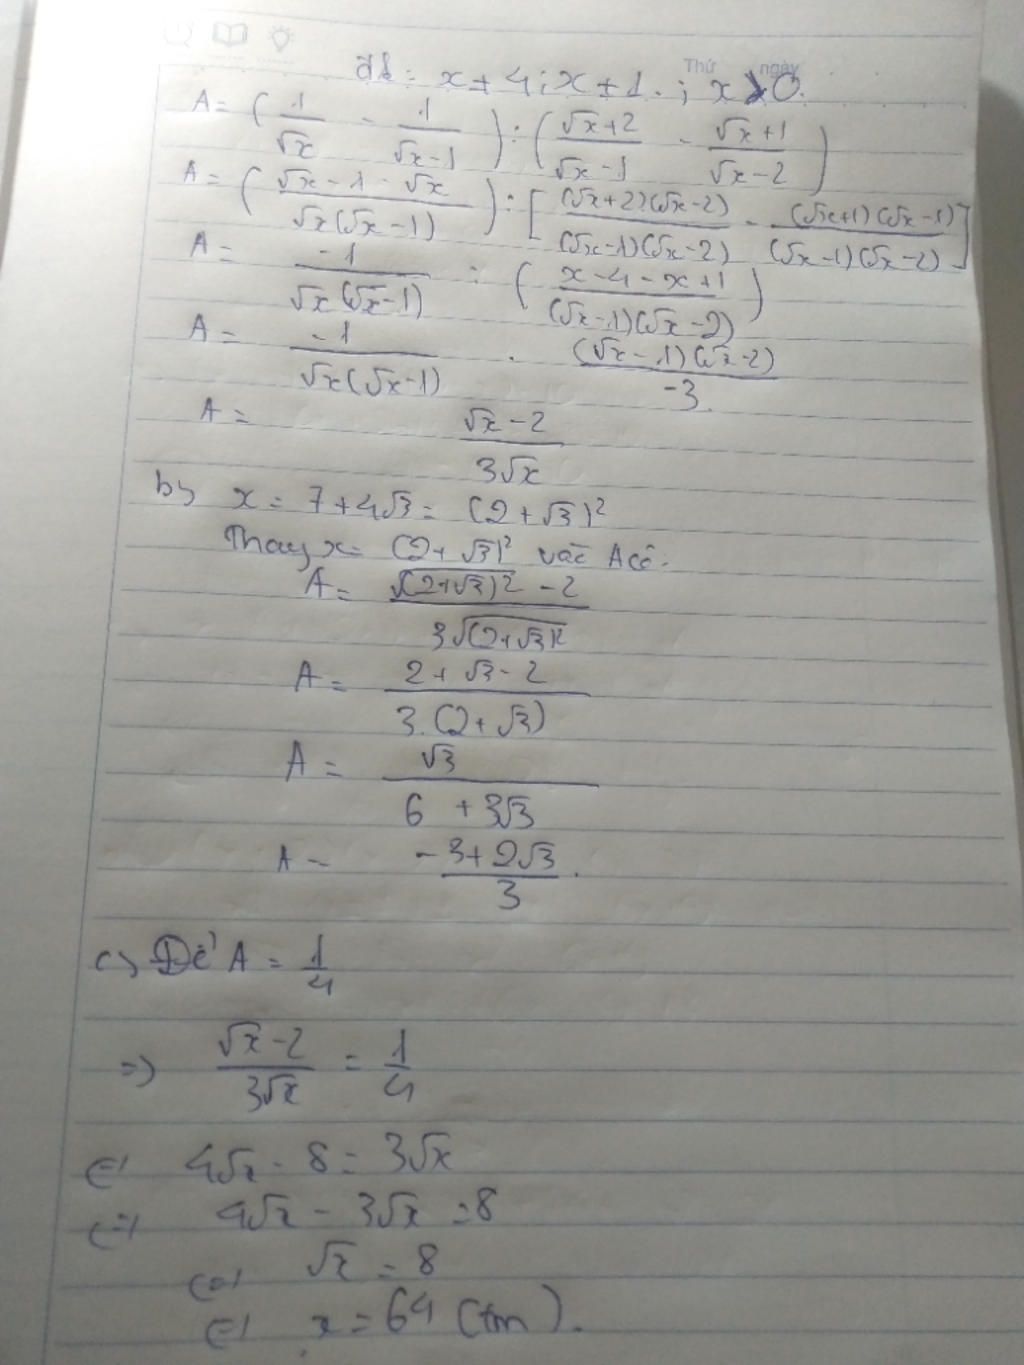 Thứ ngày
đk: x ≠ 4; x ≠ 1. ; x > 0.
A = ( 1/√x - 1/(√x-1) ) : ( (√x+2)/(√x-1) - (√x+1)/(√x-2) )
A = ( (√x-1-√x)/(√x(√x-1)) ) : [ ((√x+2)(√x-2))/((√x-1)(√x-2)) - ((√x+1)(√x-1))/((√x-1)(√x-2)) ]
A = -1/(√x(√x-1)) : ( (x-4-x+1)/((√x-1)(√x-2)) )
A = -1/(√x(√x-1)) . ((√x-1)(√x-2))/-3.
A = (√x-2)/(3√x)
b) x = 7+4√3 = (2+√3)²
Thay x = (2+√3)² vào A có:
A = (√(2+√3)² - 2)/(3√(2+√3)²)
A = (2+√3-2)/(3.(2+√3))
A = √3/(6+3√3)
A = (-3+2√3)/3.
c) Để A = 1/4
=> (√x-2)/(3√x) = 1/4
<=> 4√x - 8 = 3√x
<=> 4√x - 3√x = 8
<=> √x = 8
<=> x = 64 (tm).